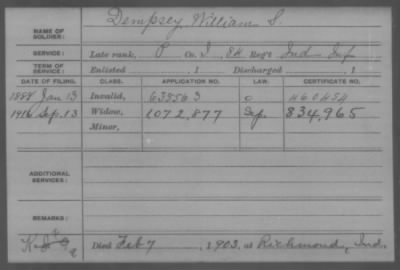 Dempsey, William S.
NAME OF
SOLDIER:
SERVICE:
Late rank, P Co. I, 84 Reg't Ind Inf
TERM OF
SERVICE:
Enlisted , 1 Discharged , 1
DATE OF FILING. CLASS. APPLICATION NO. LAW. CERTIFICATE NO.
1888 Jan 13 Invalid, 635563 460454
1916 Sep. 13 Widow, 1072,877 Sep. 834,965
Minor,
ADDITIONAL
SERVICES:
REMARKS:
Died Feb 7, 1903, at Richmond, Ind.